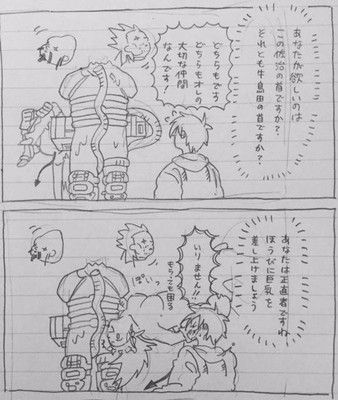 あなたが欲しいのは
この佐治の首ですか？
それとも牛島田の首ですか？
どちらもです
どちらもオレの
大切な仲間
なんです！
あなたは正直者ですね
ほうびに巨乳を
差し上げましょう
いりません！！
もらっても困る
ぽいっ